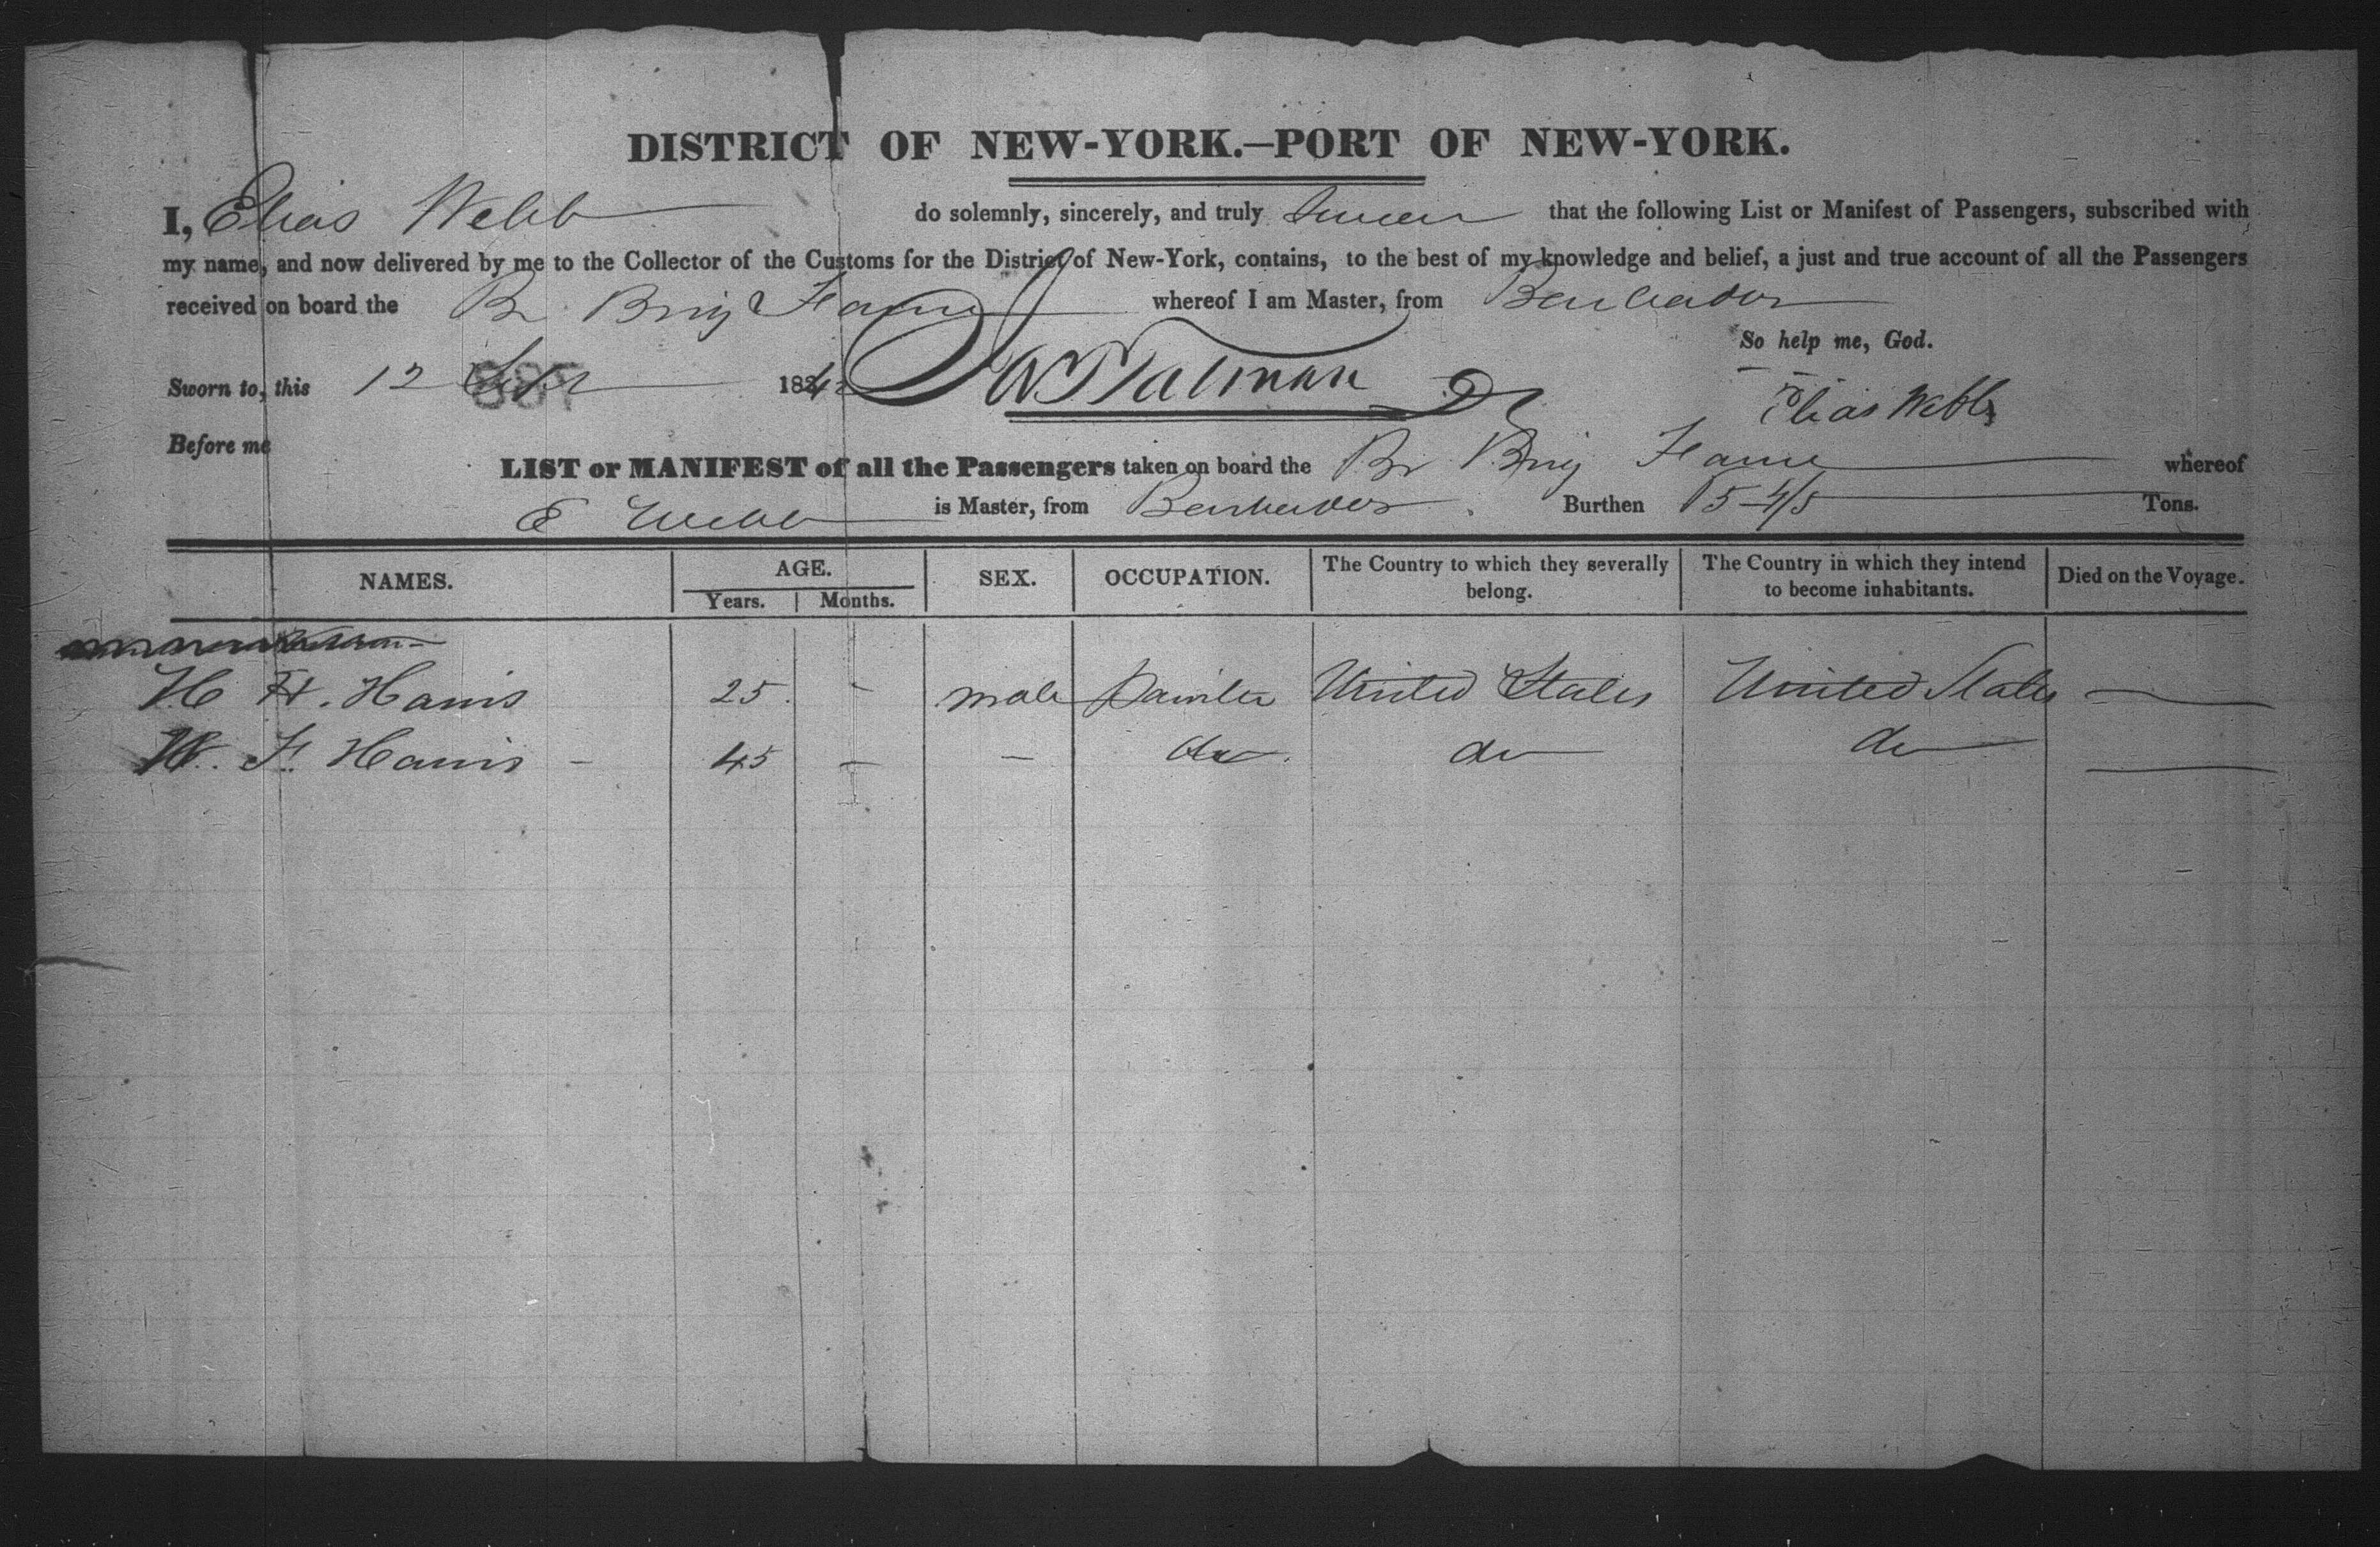 DISTRICT OF NEW-YORK.—PORT OF NEW-YORK.
I, Elias Webb do solemnly, sincerely, and truly Swear that the following List or Manifest of Passengers, subscribed with
my name, and now delivered by me to the Collector of the Customs for the District of New-York, contains, to the best of my knowledge and belief, a just and true account of all the Passengers
received on board the Br Brig Fame whereof I am Master, from Barbados
So help me, God.
Sworn to, this 12 Sept 1842 Talman Elias Webb
Before me
LIST or MANIFEST of all the Passengers taken on board the Br Brig Fame whereof
E Webb is Master, from Barbados Burthen Tons.
NAMES. AGE. Years. Months. SEX. OCCUPATION. The Country to which they severally belong. The Country in which they intend to become inhabitants. Died on the Voyage.
H H. Harris 25 - male Painter United States United States —
W. F. Harris - 45 — — do do do —